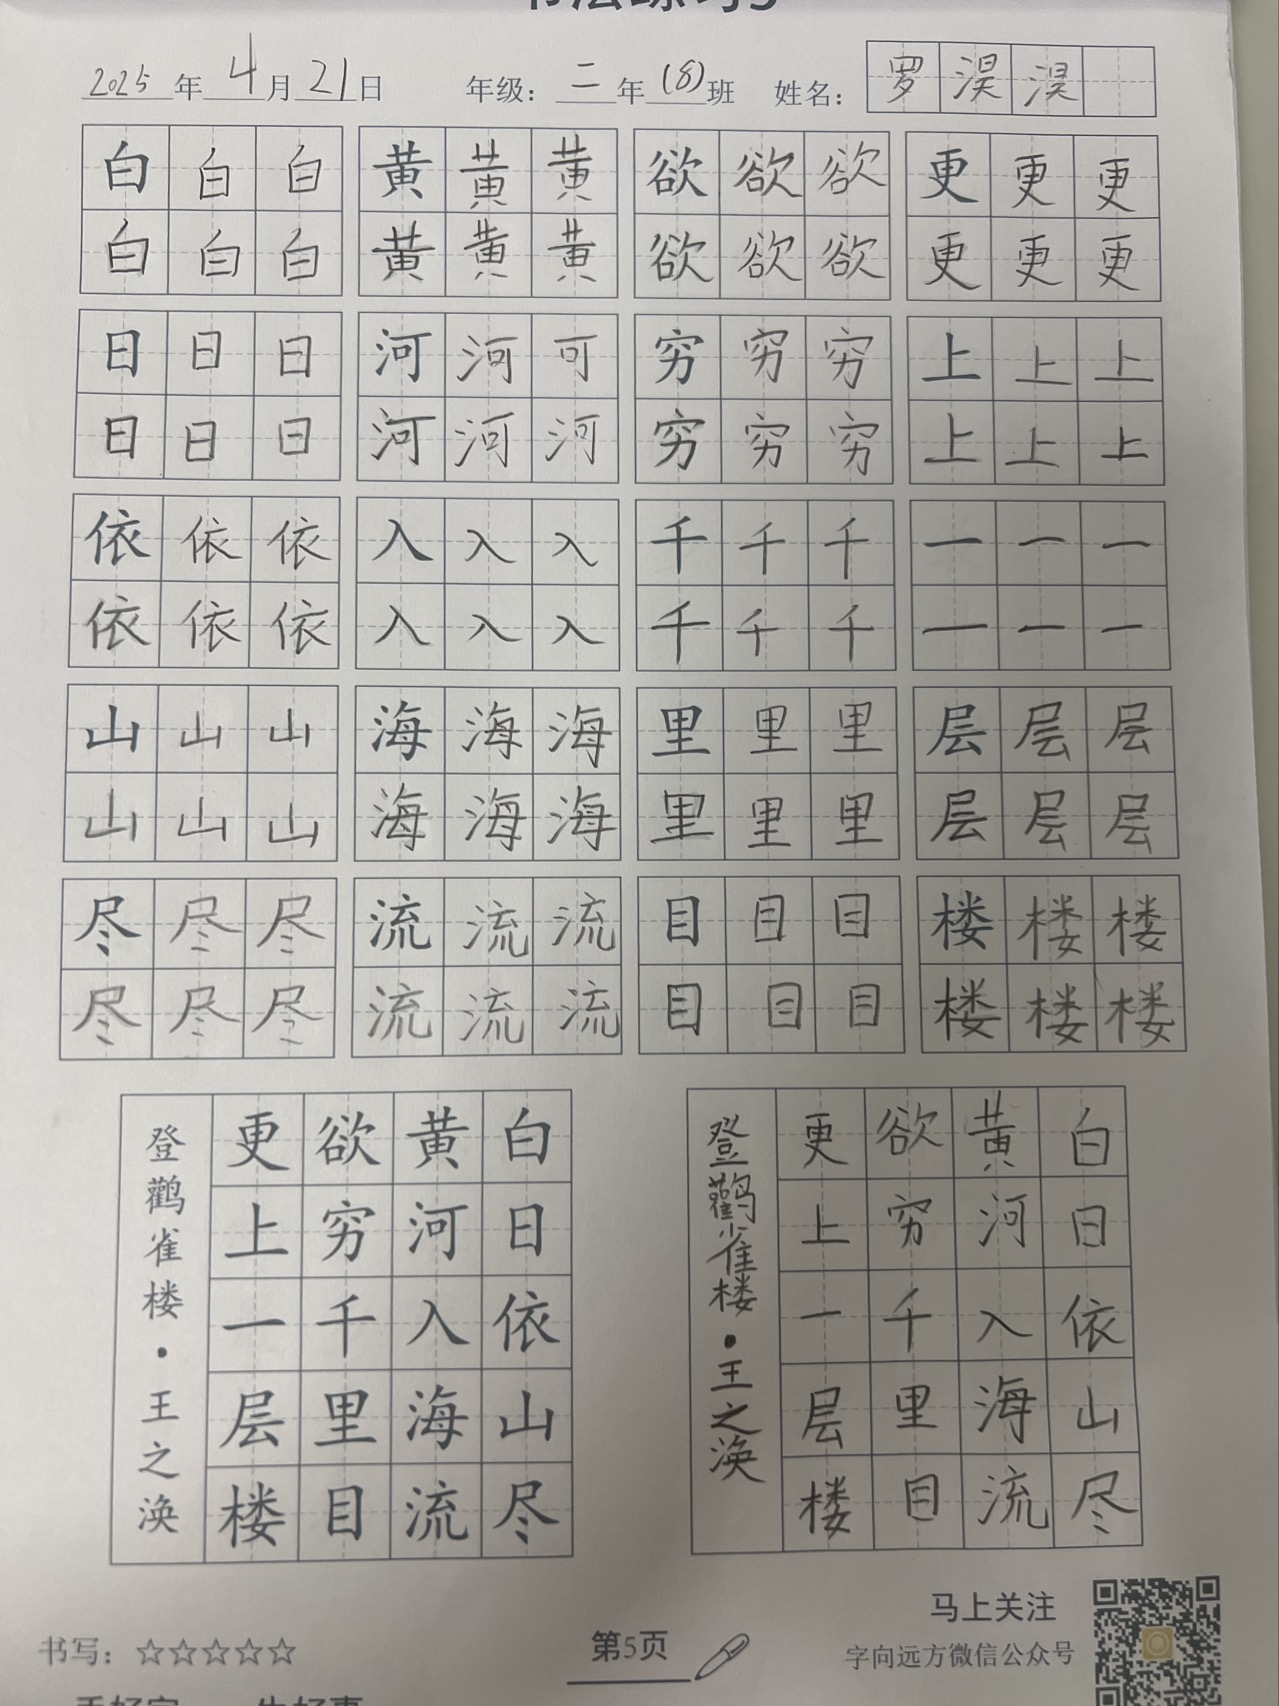 2025年4月21日 年级：二年(8)班 姓名：罗淏淏
白白白 黄黄黄 欲欲欲 更更更
白白白 黄黄黄 欲欲欲 更更更
日日日 河河可 穷穷穷 上上上
日日日 河河河 穷穷穷 上上上
依依依 入入入 千千千 一一一
依依依 入入入 千千千 一一一
山山山 海海海 里里里 层层层
山山山 海海海 里里里 层层层
尽尽尽 流流流 目目目 楼楼楼
尽尽尽 流流流 目目目 楼楼楼
白日依山尽
黄河入海流
欲穷千里目
更上一层楼
登鹳雀楼·王之涣
白日依山尽
黄河入海流
欲穷千里目
更上一层楼
登鹳雀楼·王之涣
马上关注
书写：☆☆☆☆☆ 第5页 字向远方微信公众号